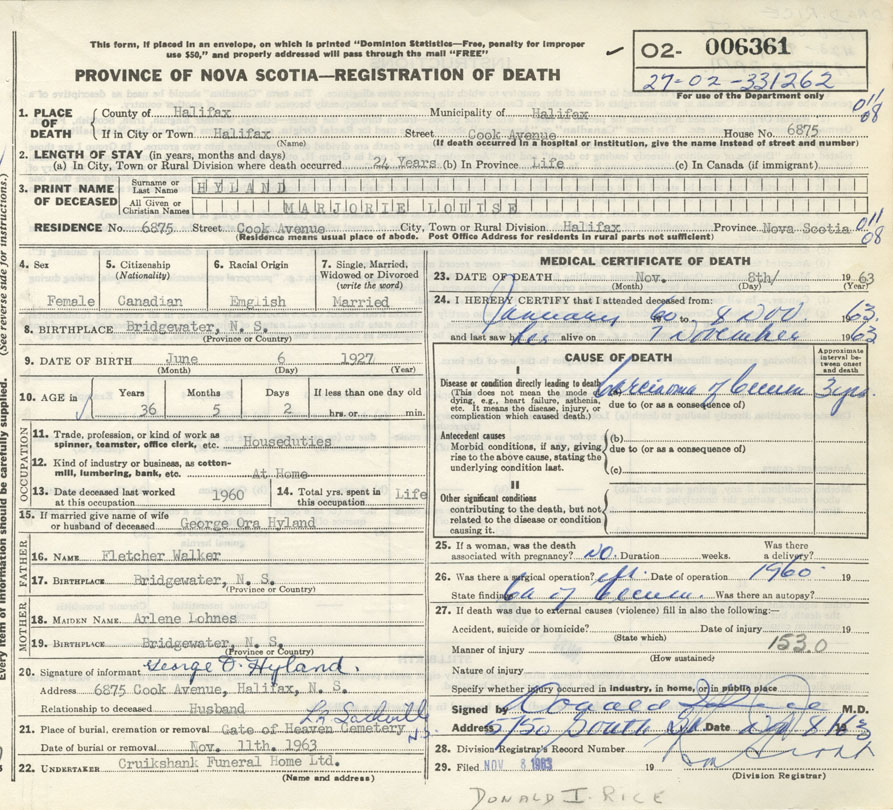 This form, if placed in an envelope, on which is printed "Dominion Statistics—Free, penalty for improper
use $50," and properly addressed will pass through the mail "FREE"
PROVINCE OF NOVA SCOTIA—REGISTRATION OF DEATH
02- 006361
27-02-331262
For use of the Department only
1. PLACE OF DEATH County of Halifax Municipality of Halifax 011
If in City or Town Halifax Street Cook Avenue House No. 6875 08
(Name) (If death occurred in a hospital or institution, give the name instead of street and number)
2. LENGTH OF STAY (in years, months and days)
(a) In City, Town or Rural Division where death occurred 24 Years (b) In Province Life (c) In Canada (if immigrant)
3. PRINT NAME OF DECEASED Surname or Last Name HYLAND
All Given or Christian Names MARJORIE LOUISE
RESIDENCE No. 6875 Street Cook Avenue City, Town or Rural Division Halifax Province Nova Scotia 011 08
(Residence means usual place of abode. Post Office Address for residents in rural parts not sufficient)
4. Sex 5. Citizenship (Nationality) 6. Racial Origin 7. Single, Married, Widowed or Divorced (write the word)
Female Canadian Emglish Married
8. BIRTHPLACE Bridgewater, N. S.
(Province or Country)
9. DATE OF BIRTH June 6 1927
(Month) (Day) (Year)
10. AGE in Years Months Days If less than one day old
36 5 2 hrs. or min.
OCCUPATION
11. Trade, profession, or kind of work as spinner, teamster, office clerk, etc. Houseduties
12. Kind of industry or business, as cotton-mill, lumbering, bank, etc. At Home
13. Date deceased last worked at this occupation 1960 14. Total yrs. spent in this occupation Life
15. If married give name of wife or husband of deceased George Ora Hyland
FATHER
16. NAME Fletcher Walker
17. BIRTHPLACE Bridgewater, N. S.
(Province or Country)
MOTHER
18. MAIDEN NAME Arlene Lohnes
19. BIRTHPLACE Bridgewater, N. S.
(Province or Country)
20. Signature of informant George O. Hyland.
Address 6875 Cook Avenue, Halifax, N. S.
Relationship to deceased Husband
Lr Sackville
21. Place of burial, cremation or removal Gate of Heaven Cemetery N.S.
Date of burial or removal Nov. 11th. 1963
22. UNDERTAKER Cruikshank Funeral Home Ltd.
(Name and address)
MEDICAL CERTIFICATE OF DEATH
23. DATE OF DEATH Nov. 8th/ 1963
(Month) (Day) (Year)
24. I HEREBY CERTIFY that I attended deceased from:
January 60 to 8 Nov. 1963.
and last saw her alive on 7 November 1963
CAUSE OF DEATH Approximate interval between onset and death
I
Disease or condition directly leading to death Carcinoma of Cecum 3 yrs.
(This does not mean the mode of dying, e.g., heart failure, asthenia, etc. It means the disease, injury, or complication which caused death.) due to (or as a consequence of)
Antecedent causes (b)
Morbid conditions, if any, giving rise to the above cause, stating the underlying condition last. due to (or as a consequence of)
(c)
II
Other significant conditions
contributing to the death, but not related to the disease or condition causing it.
25. If a woman, was the death associated with pregnancy? NO. Duration weeks. Was there a delivery?
26. Was there a surgical operation? Date of operation 1960 19
State findings Ca of Cecum. Was there an autopsy?
27. If death was due to external causes (violence) fill in also the following:—
Accident, suicide or homicide? Date of injury 19
(State which)
Manner of injury 153.0
(How sustained)
Nature of injury
Specify whether injury occurred in industry, in home, or in public place
Signed by Donald M.D.
Address 5750 South St. Date 8/63
28. Division Registrar's Record Number
29. Filed NOV 8 1963 19
(Division Registrar)
DONALD I. RICE
(See reverse side for instructions.)
Every item of information should be carefully supplied.